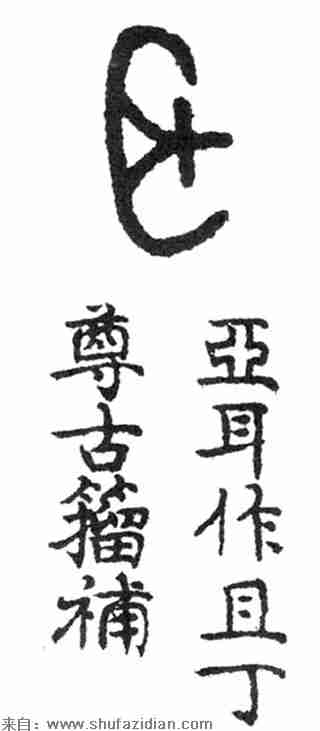 亞耳作且丁
尊古籀補
来自：www.shufazidian.com